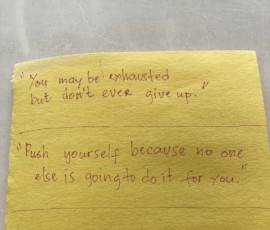 "You may be exhausted
but don't ever give up."
"Push yourself because no one
else is going to do it for you."